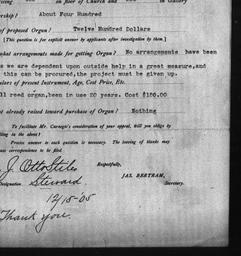 on floor of Church and in Gallery
ership? About Four Hundred
of proposed Organ? Twelve Hundred Dollars
[This question is for explicit answer by applicant after investigation by them.]
what arrangements made for getting Organ? No arrangements have been
we are dependent upon outside help in a great measure, and
this can be procured, the project must be given up.
ulars of present Instrument, Age, Cost Price, Etc.
ll reed organ, been in use 20 years. Cost $100.00
nt already raised toward purchase of Organ? Nothing
To facilitate Mr. Carnegie's consideration of your appeal, will you oblige by
iting in the above?
Precise answer to each question is necessary. The leaving of blanks may
use correspondence to be filed.
J. Otto Stiles
Respectfully,
Designation Steward
JAS. BERTRAM,
Secretary.
12/15 '05
Thank you.